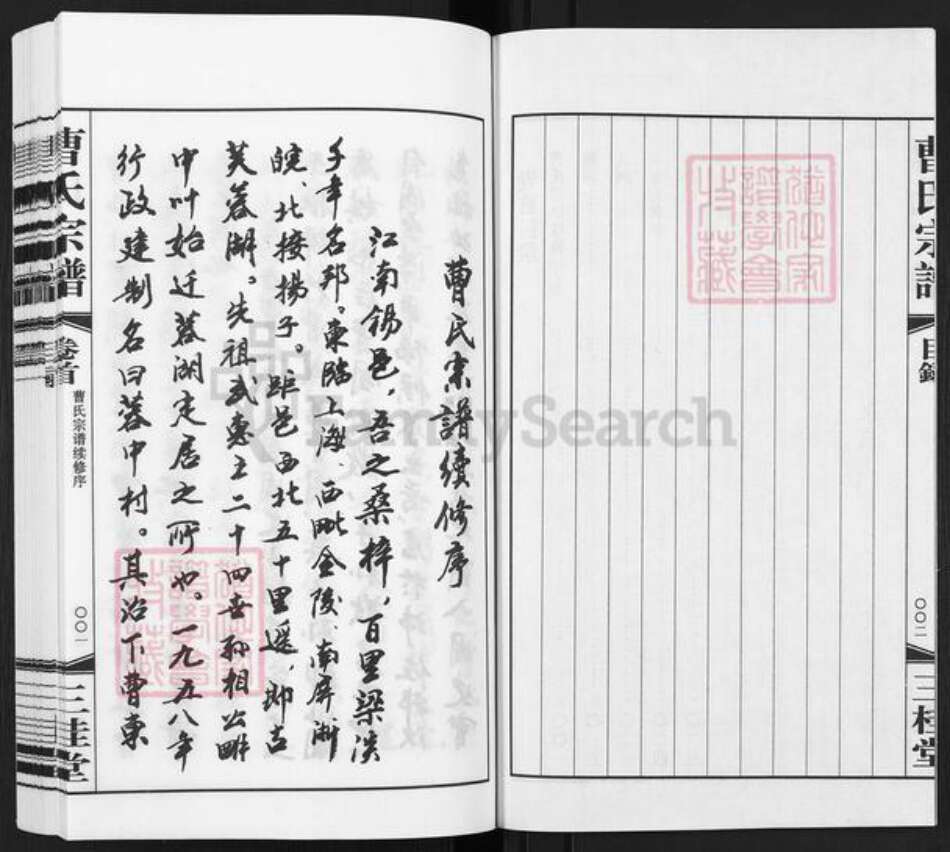 曹氏宗譜
目錄
〇〇二
三桂堂
曹氏宗譜續修序
江南錫邑，吾之桑梓，百里梁溪，
千年名邦。東臨上海、西毗金陵、南屏浙
皖、北接揚子。距邑西北五十里遥，即古
芙蓉湖。先祖武惠王二十四世孙相公畔
中叶始迁蓉湖定居之所也。一九五八年
行政建制名曰蓉中村。其治下曹東
曹氏宗譜
卷首
曹氏宗谱续修序
〇〇一
三桂堂
FamilySearch